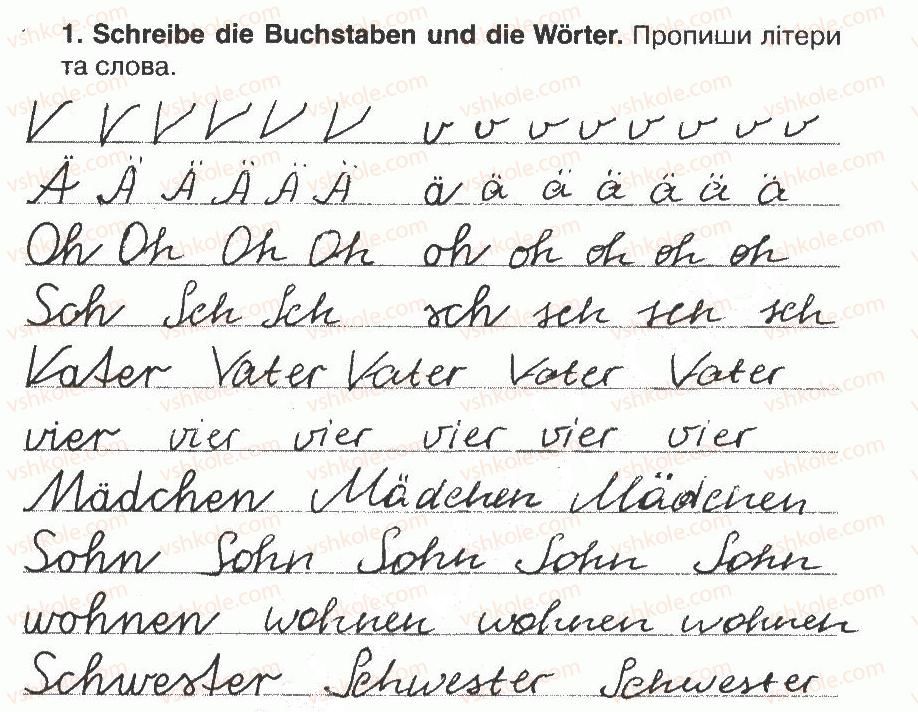 1. Schreibe die Buchstaben und die Wörter. Пропиши літери
та слова.
V V V V V V v v v v v v v v
Ä Ä Ä Ä Ä Ä ä ä ä ä ä ä ä
Oh Oh Oh Oh oh oh oh oh oh
Sch Sch Sch sch sch sch sch
Vater Vater Vater Vater Vater
vier vier vier vier vier vier
Mädchen Mädchen Mädchen
Sohn Sohn Sohn Sohn Sohn
wohnen wohnen wohnen wohnen
Schwester Schwester Schwester